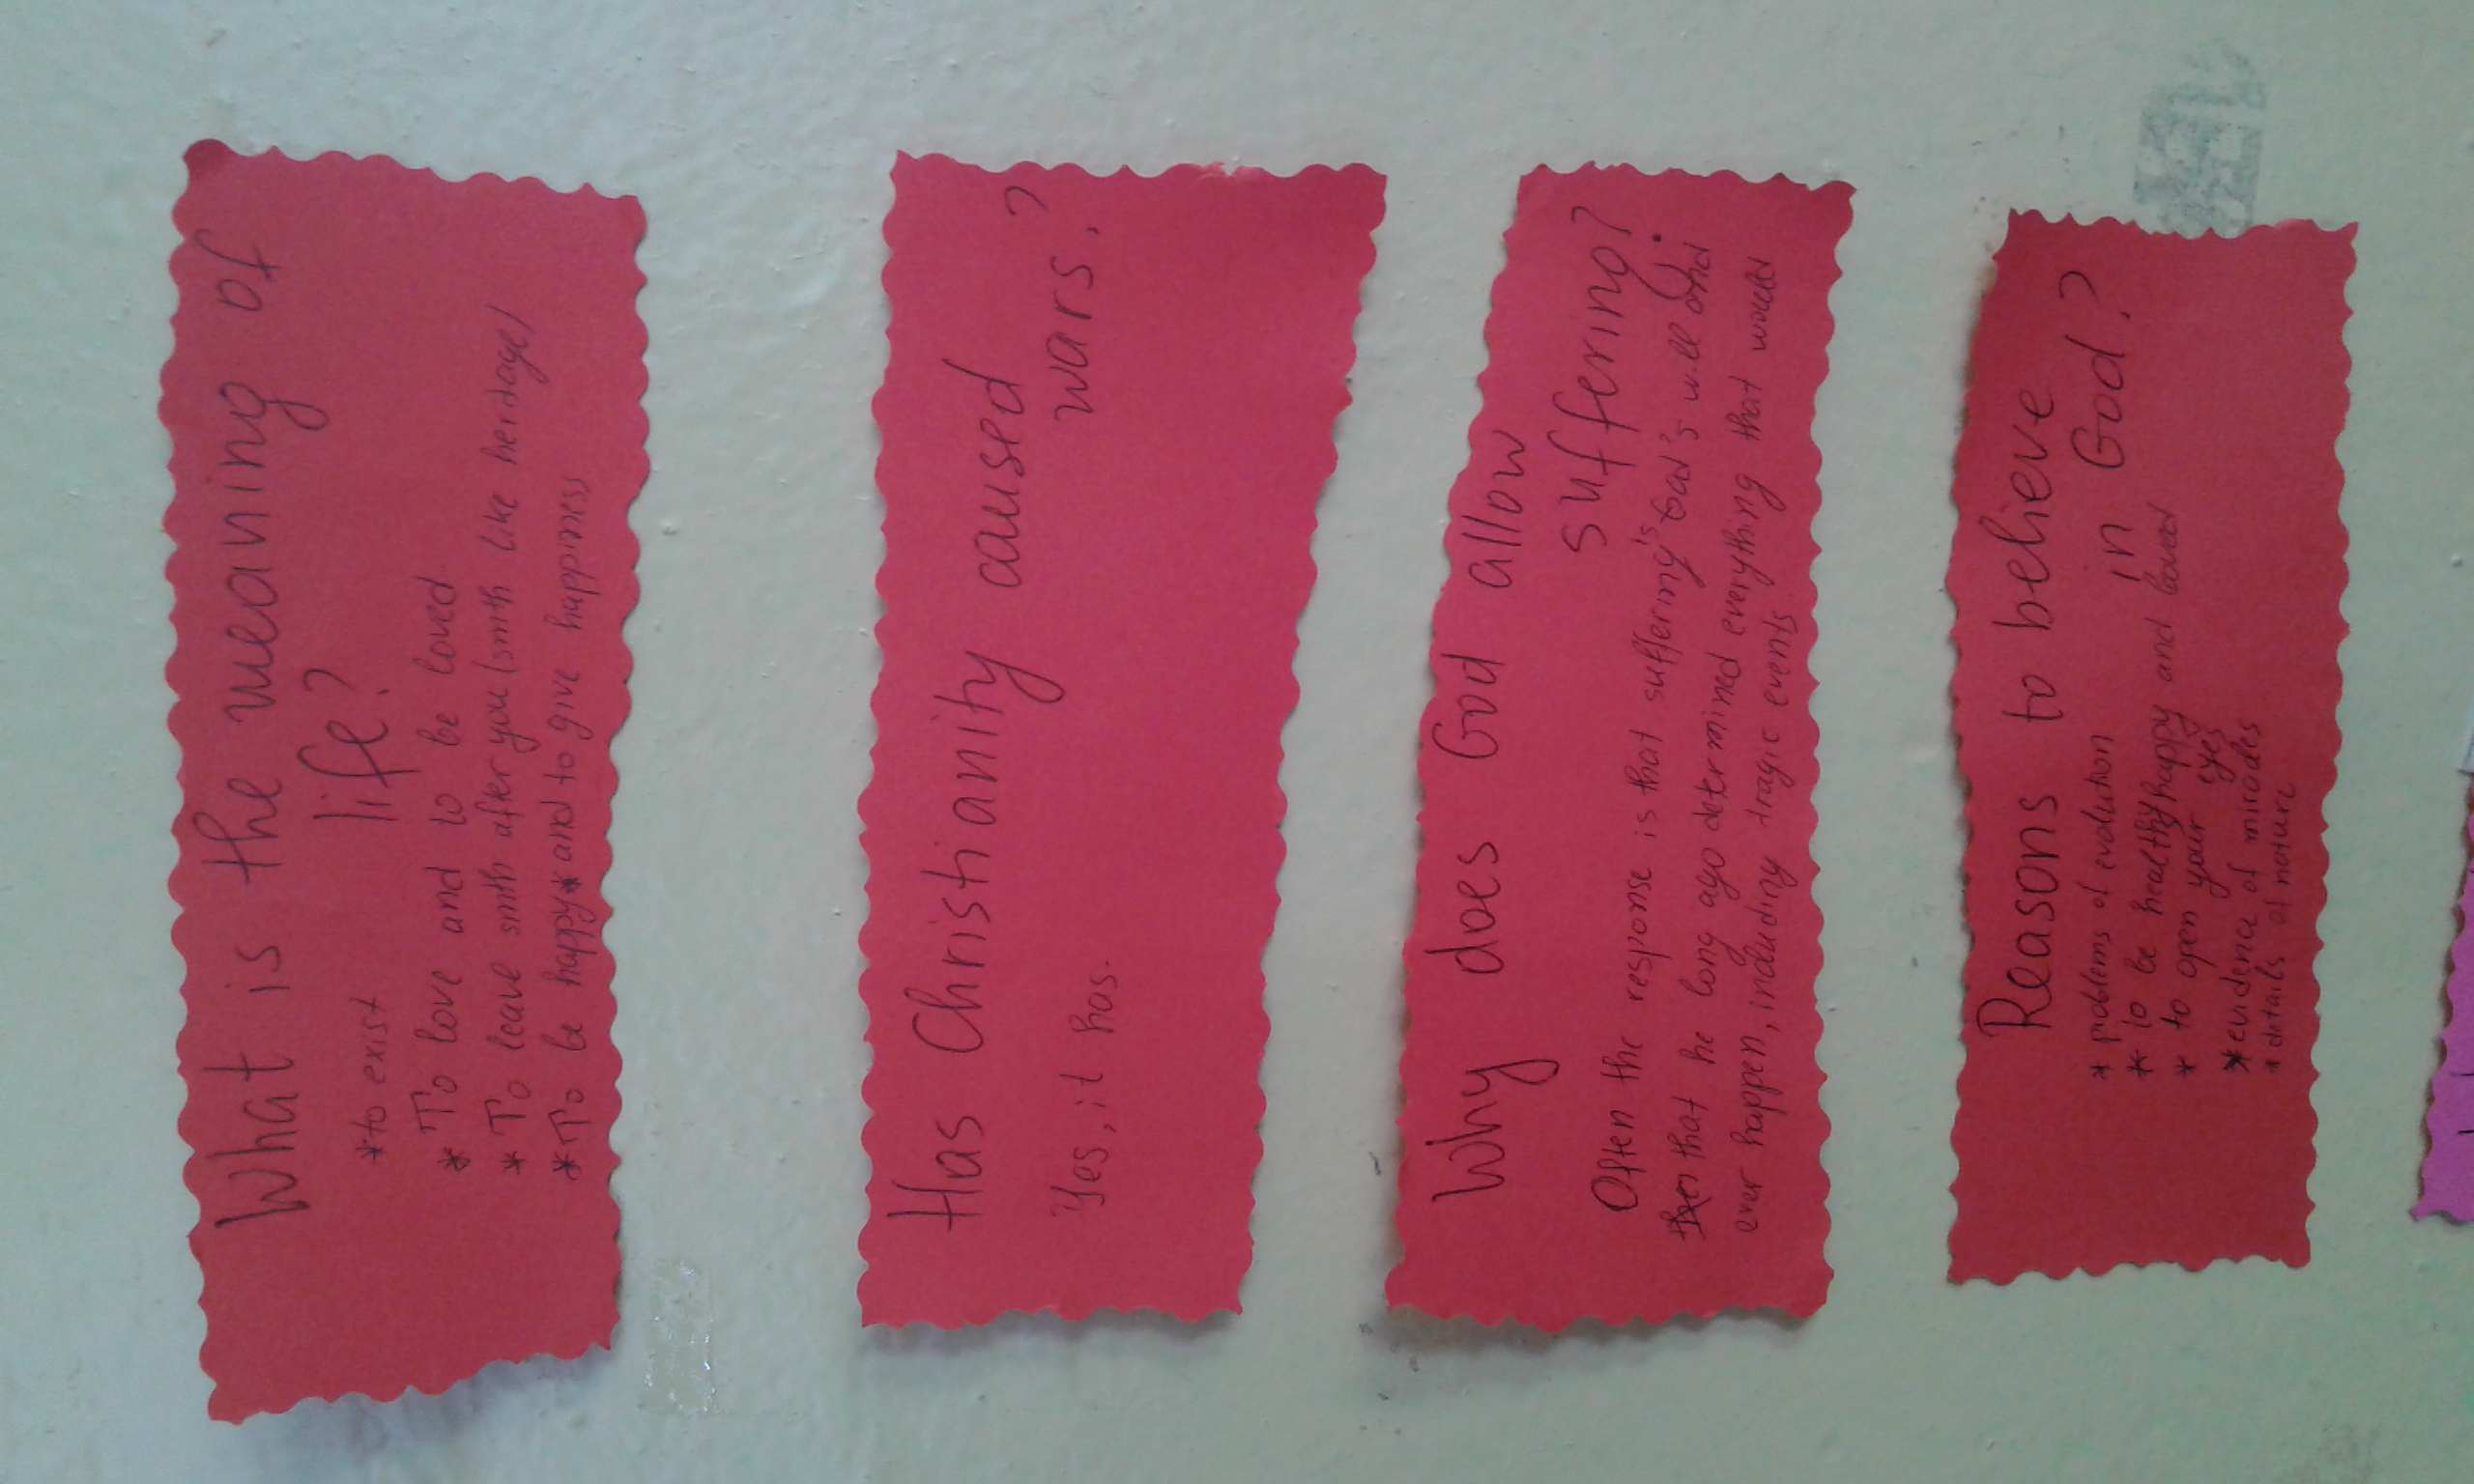 What is the meaning of
life?
* to exist
* To love and to be loved.
* To leave smth after you (smth like heritage)
* To be happy * and to give happiness
Has Christianity caused
wars?
Yes, it has.
Why does God allow
suffering?
Often the response is that suffering's God's will and
that he long ago determined everything that would
ever happen, including tragic events.
Reasons to believe
in God?
* problems of evolution
* to be healthy, happy and loved
* to open your eyes
* evidence of miracles
* details of nature